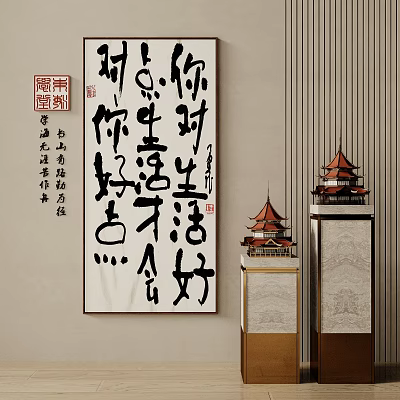 你对生活好
点生活才会
对你好点
书山有路勤为径
学海无涯苦作舟